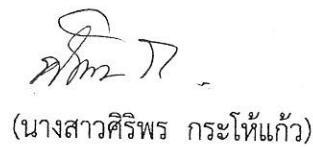 (นางสาวศิริพร กระโห้แก้ว)